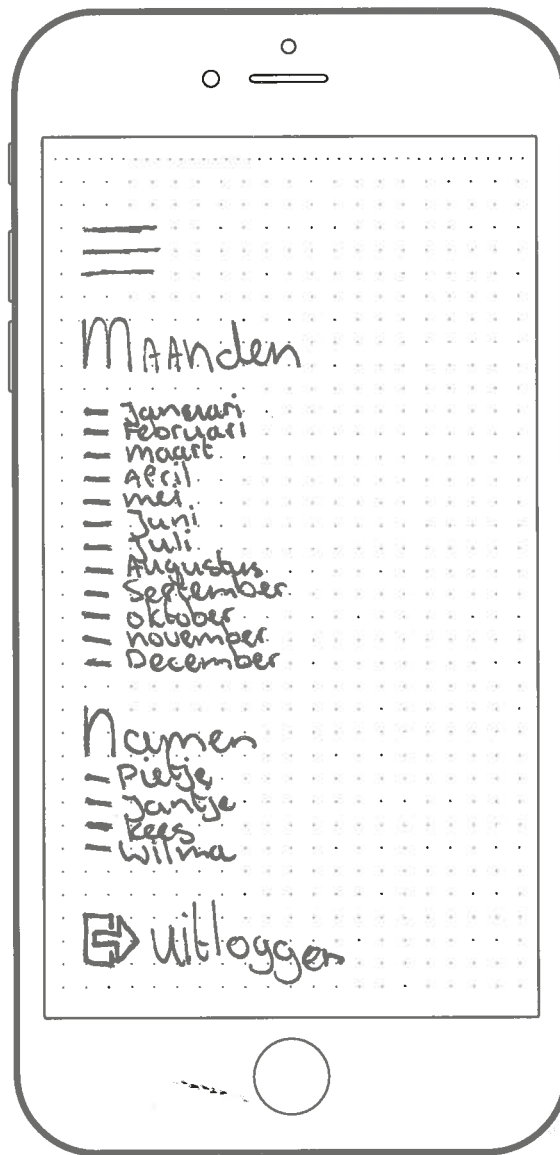 Maanden
- Januari
- Februari
- maart
- April
- mei
- Juni
- Juli
- Augustus
- September
- oktober
- november
- December
Namen
- Pietje
- Jantje
- Kees
- Wilma
uitloggen